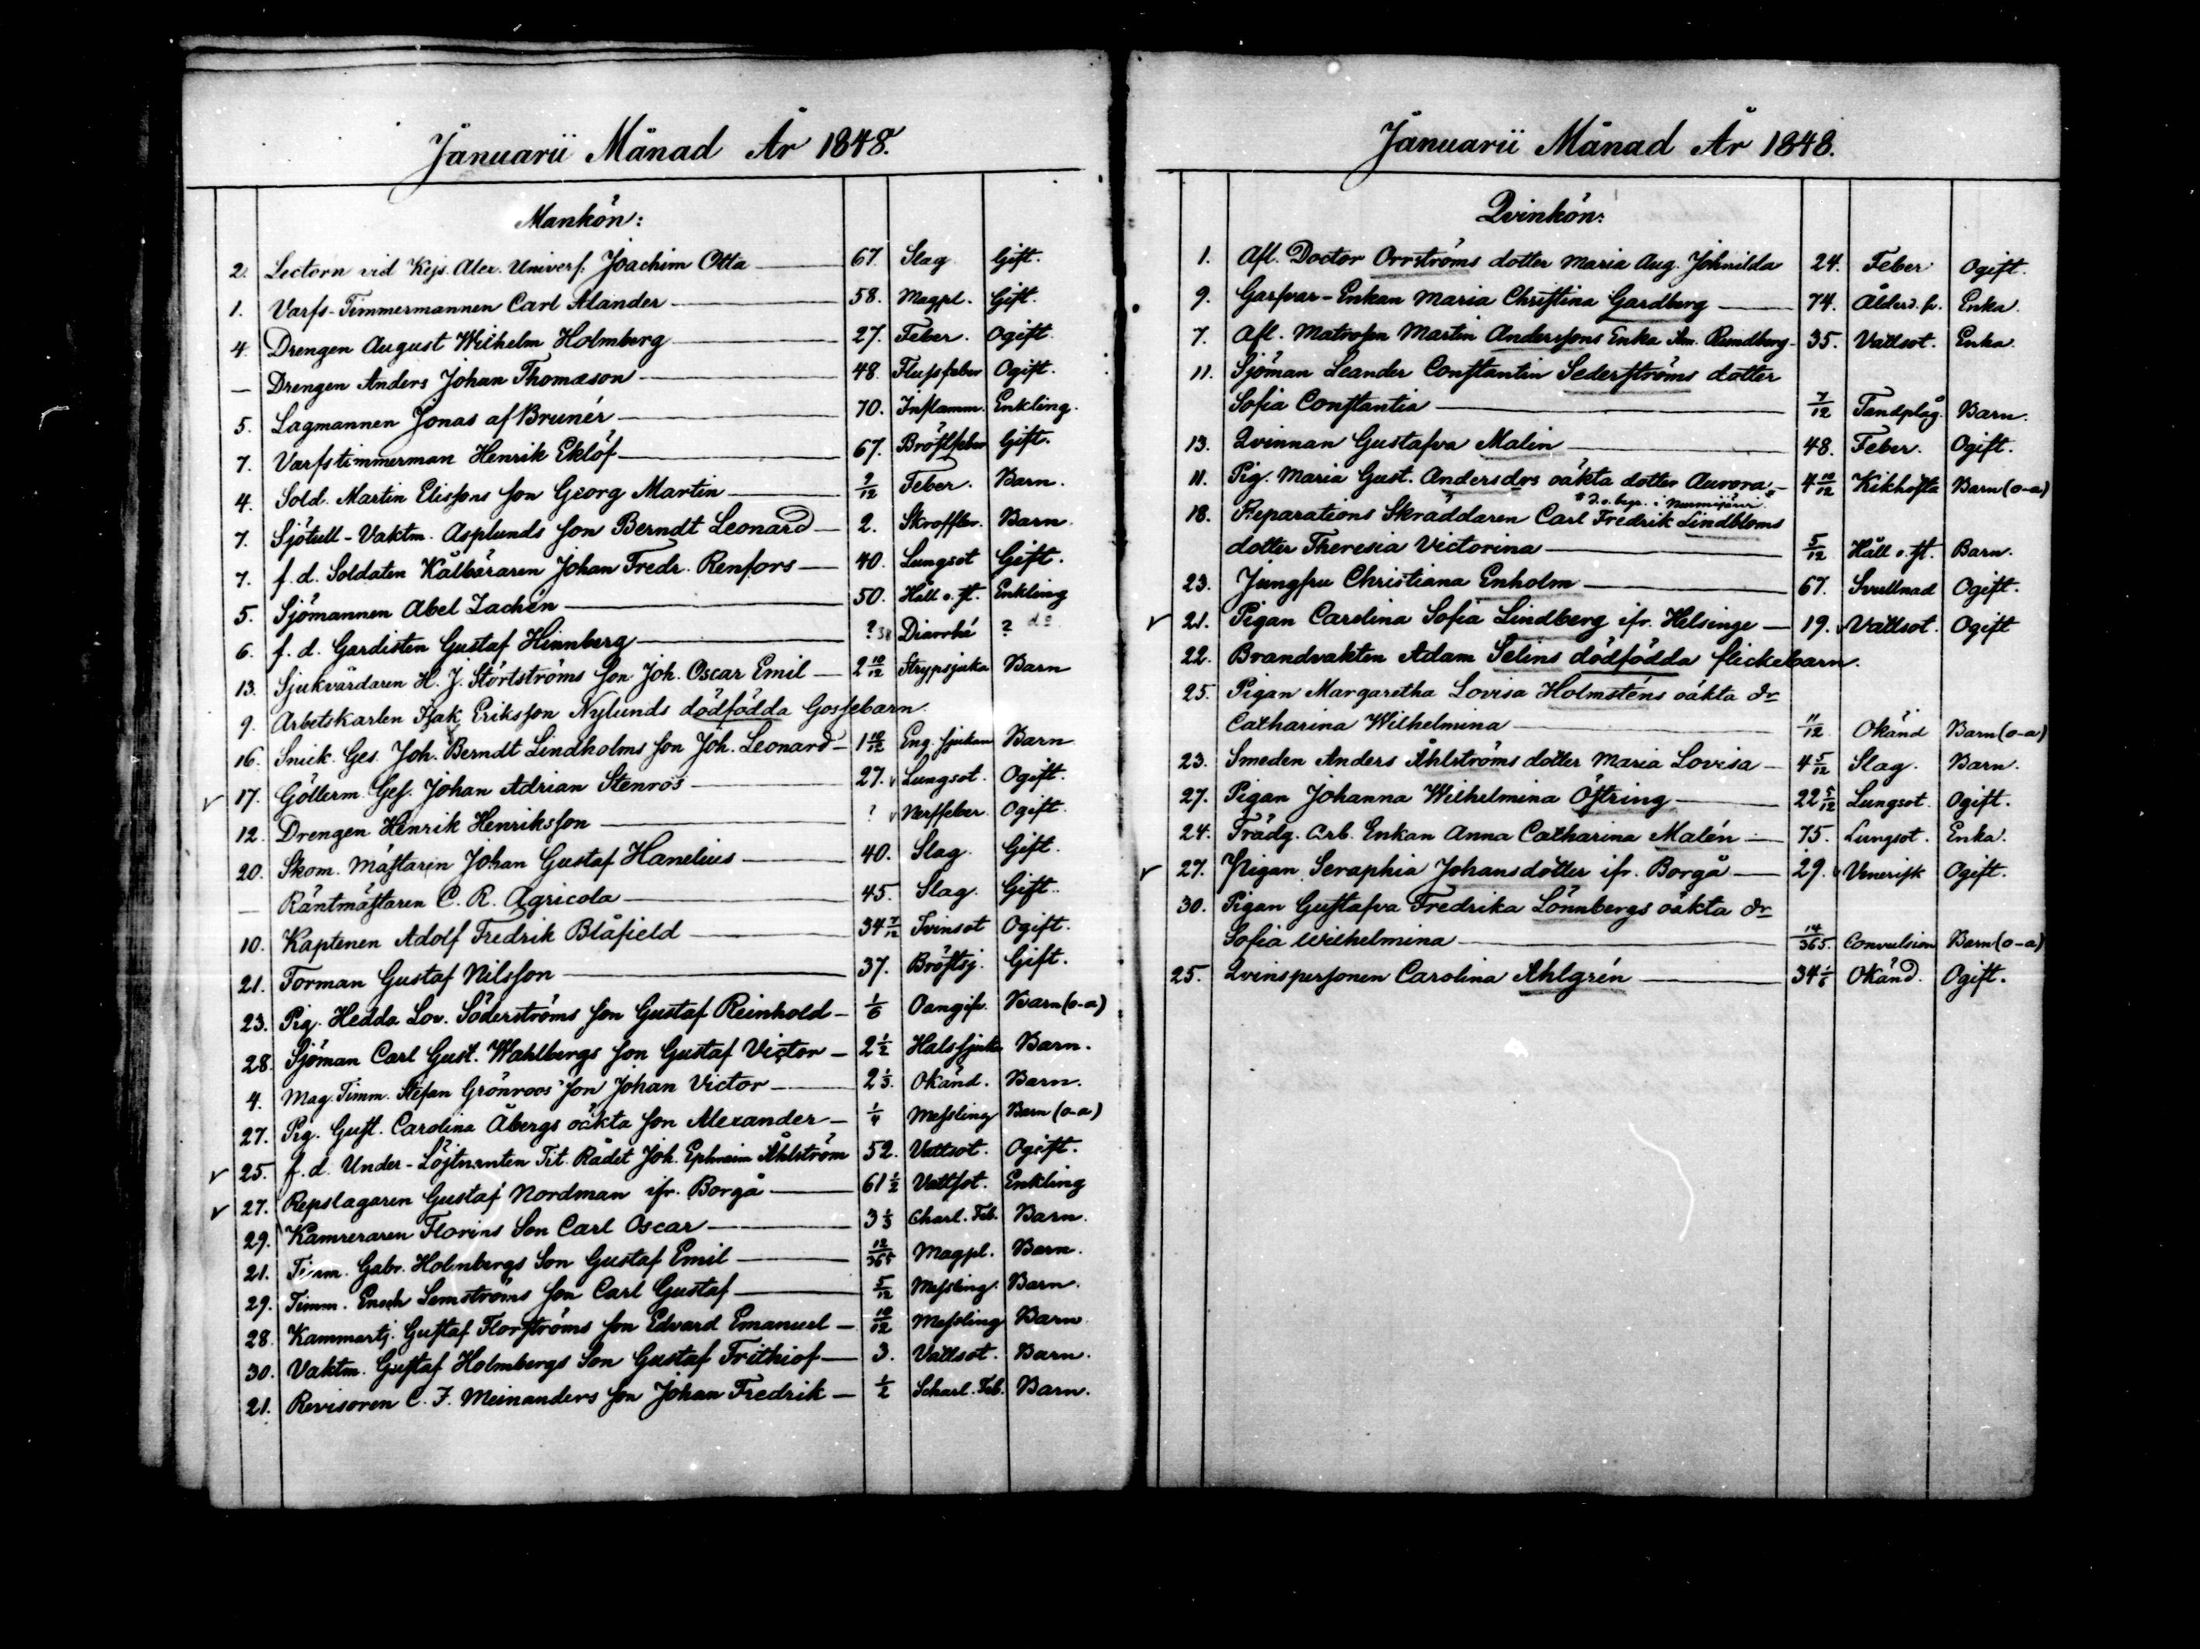 Januarii Månad År 1848.
Mankön:
2. Lectorn vid Kejs. Alex. Universf. Joachim Otta — 67. Slag Gift.
1. Varfs-Timmermannen Carl Alander — 58. Magpl. Gift.
4. Drengen August Wilhelm Holmberg — 27. Feber. Ogift.
— Drengen Anders Johan Thomason — 48. Flussfeber Ogift.
5. Lagmannen Jonas af Brunér — 70. Inflamm. Enkling.
7. Varfstimmerman Henrik Eklöf — 67. Bröstfeber Gift.
4. Sold. Martin Elissons son Georg Martin — 9/12 Feber. Barn.
7. Sjötull-Vaktm. Asplunds son Berndt Leonard — 2. Skroffler. Barn.
7. f.d. Soldaten Kälkäraren Johan Fredr. Renfors — 40. Lungsot Gift.
5. Sjömannen Abel Zachén — 50. Håll o. st. Enkling
6. f.d. Gardisten Gustaf Hinnberg — ? 38 Diarrhé ? do
13. Sjukvårdaren H. J. Störtströms son Joh. Oscar Emil — 2 10/12 Strypsjuka Barn
9. Arbetskarlen Isak Eriksson Nylunds dödfödda Gossebarn.
16. Snick. Ges. Joh. Berndt Lindholms son Joh. Leonard — 1 10/12 Eng. sjukan Barn
17. Göllerm. Ges. Johan Adrian Stenros — 27. Lungsot. Ogift.
12. Drengen Henrik Henriksson — ? Nerffeber Ogift.
20. Skom. Mästaren Johan Gustaf Hanelius — 40. Slag. Gift.
— Räntmästaren C. R. Agricola — 45. Slag. Gift.
10. Kaptenen Adolf Fredrik Blåfield — 34 7/12 Tvinsot Ogift.
21. Forman Gustaf Nilsson — 37. Bröstsj. Gift.
23. Pig. Hedda Lov. Söderströms son Gustaf Reinhold — 1/6 Oangifv. Barn (o-a)
28. Sjöman Carl Gust. Wahlbergs son Gustaf Victor — 2 1/2 Halssjuka Barn.
4. Mag. Timm. Stefan Grönroos' son Johan Victor — 2 1/3. Okänd. Barn.
27. Pig. Gust. Carolina Åbergs oäkta son Alexander — 1/4 Messling Barn (o-a)
25. f.d. Under-Löjtnanten Tit. Rådet Joh. Ephraim Åhlström 52. Vattsot. Ogift.
27. Repslagaren Gustaf Nordman ifr. Borgå — 61 1/2 Vattsot. Enkling
29. Kamreraren Florins Son Carl Oscar — 3 1/3 Charl. Feb. Barn.
21. Timm. Gabr. Holmbergs Son Gustaf Emil — 12/365 Magpl. Barn.
29. Timm. Enoch Lemströms son Carl Gustaf — 5/12 Messling. Barn.
28. Kammartj. Gustaf Florströms son Edvard Emanuel — 10/12 Messling Barn
30. Vaktm. Gustaf Holmbergs Son Gustaf Frithiof — 3. Vattsot. Barn.
21. Revisoren C. F. Meinanders son Johan Fredrik — 1/2 Scharl. Feb. Barn.
Januarii Månad År 1848.
Qvinkön:
1. Afl. Doctor Orrströms dotter Maria Aug. Johnilda 24. Feber Ogift.
9. Garfvar-Enkan Maria Christina Gardberg — 74. Ålderd. br. Enka.
7. Afl. Matrosen Martin Anderssons Enka Am. Rundberg — 35. Vattsot. Enka.
11. Sjöman Leander Constantin Sederströms dotter
Sofia Constantia — 7/12 Tandplåg. Barn.
13. Qvinnan Gustafva Malin — 48. Feber. Ogift.
11. Pig. Maria Gust. Andersdrs oäkta dotter Aurora — 4 10/12 Kikhosta Barn (o-a)
* D. o. begr. i Nurmijärvi.
18. Reparations Skräddaren Carl Fredrik Lindbloms
dotter Theresia Victorina — 5/12 Håll o. st. Barn.
23. Jungfru Christiana Enholm — 67. Svullnad Ogift.
21. Pigan Carolina Sofia Lindberg ifr. Helsinge — 19. Vattsot. Ogift
22. Brandvakten Adam Selins dödfödda flickebarn.
25. Pigan Margaretha Lovisa Holmsténs oäkta dr
Catharina Wilhelmina — 11/12 Okänd Barn (o-a)
23. Smeden Anders Åhlströms dotter Maria Lovisa — 4 5/12 Slag. Barn.
27. Pigan Johanna Wilhelmina Östring — 22 5/12 Lungsot. Ogift.
24. Trädg. Arb. Enkan Anna Catharina Malén — 75. Lungsot. Enka.
27. Pigan Seraphia Johansdotter ifr. Borgå — 29. Venerisk Ogift.
30. Pigan Gustafva Fredrika Lönnbergs oäkta dr
Sofia Wilhelmina — 14/365. Convulsion Barn (o-a)
25. Qvinspersonen Carolina Ahlgrén — 34 1/6 Okänd. Ogift.